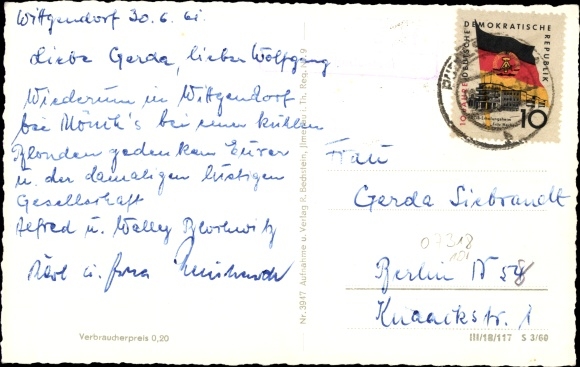 Wittgendorf 30.6.61.
Liebe Gerda, lieber Wolfgang
Wiederum in Wittgendorf
bei Mönch's bei einem kühlen
Blonden gedenken Eurer
u. der damaligen lustigen
Gesellschaft
Alfred u. Walley
Karl u.
Verbraucherpreis 0,20
Nr. 3947 Aufnahme u. Verlag R. Bechstein, Ilmenau i. Th. Reg.
10 JAHRE DEUTSCHE DEMOKRATISCHE REPUBLIK
10
Frau
Gerda Siebrandt
07318
101
Berlin N 58
Knaackstr. 1
III/18/117 S 3/60